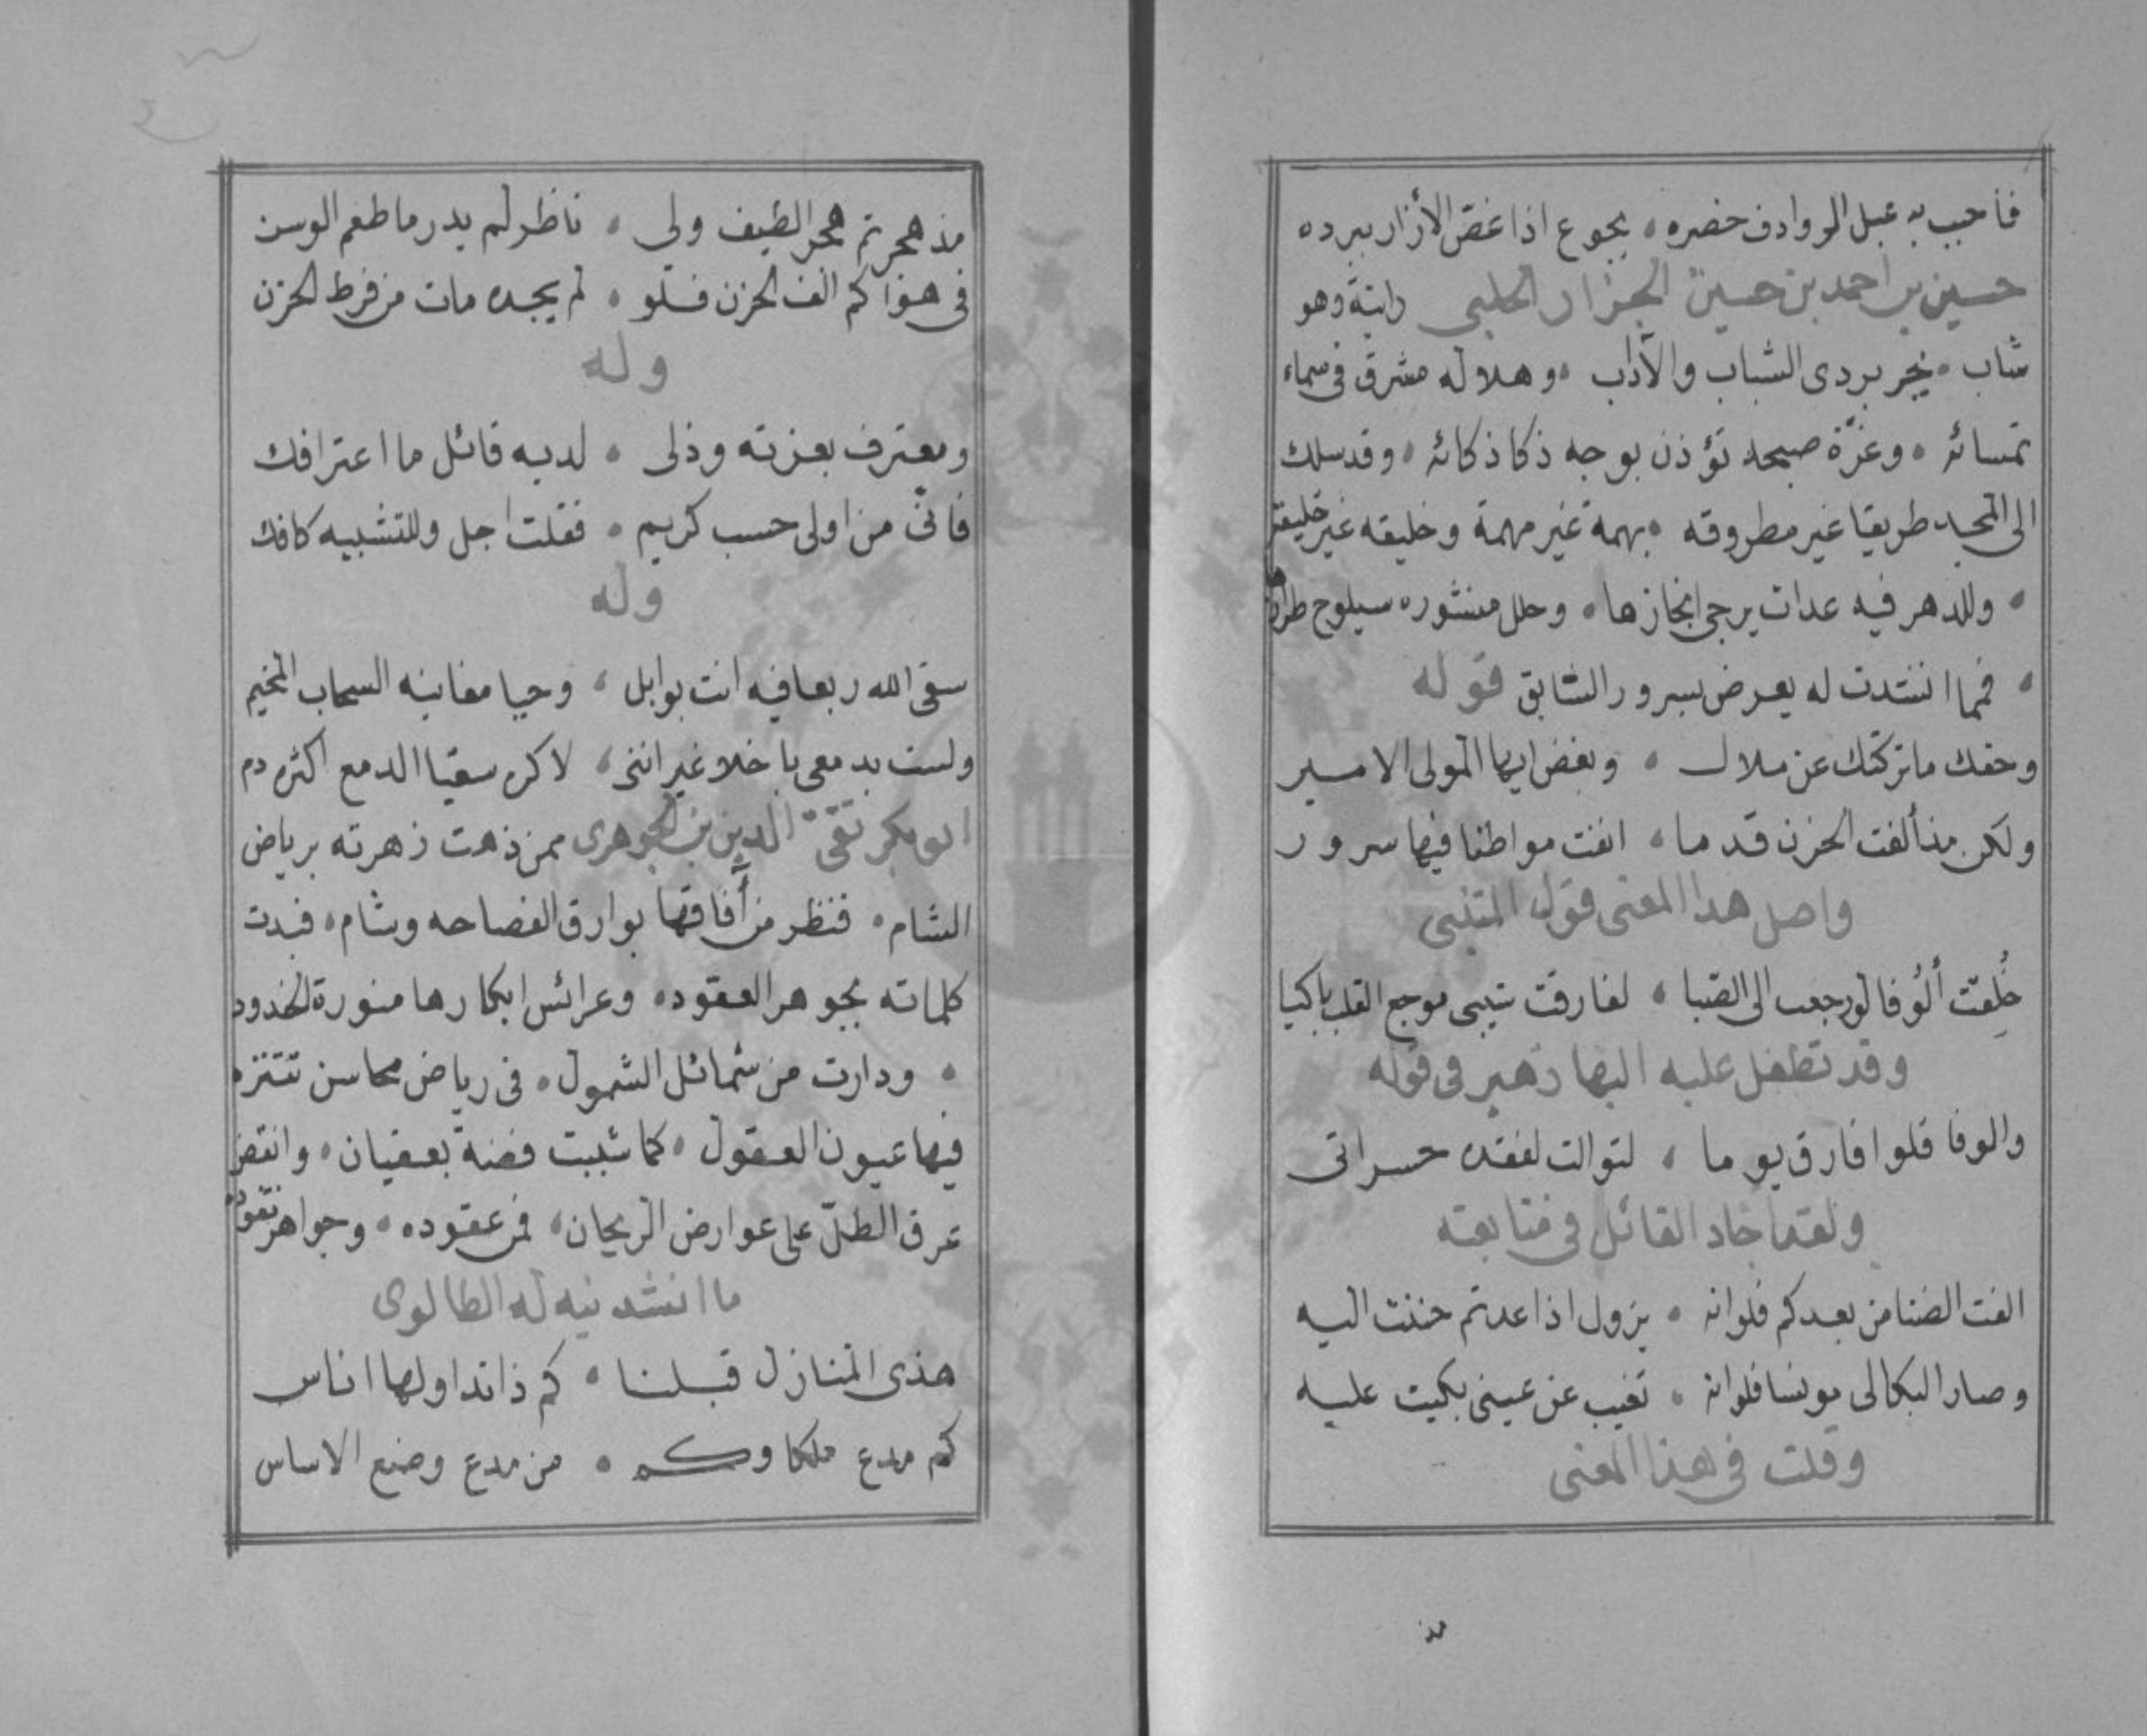 فأحبب به عبل الروادف خصره ، يجوع اذا غصّ الأزار ببرده
حسين بن احمد بن حسين الجزار الحلبي رايته وهو
شاب ، يجر بردى الشباب والآداب ، وهلاله مشرق فى سماء
تمسائه ، وغرّة صبحه تؤذن بوجه ذكا ذكائه ، وقد سلك
الى المجد طريقا غير مطروقه ، بهمة غير مهمة وخليقه غير خليقة
، وللدهر فيه عدات يرجى انجازها ، وحلل منشوره سيلوح طرازها
، فمما انشدت له يعرض بسرور السابق قوله
وحقك ما تركتك عن ملال ، وبغض ايها المولى الامير
ولكن مذ ألفت الحزن قدما ، انفت مواطنا فيها سرور
واصل هدا المعنى قول المتنبى
خُلِقتُ ألُوفا لو رجعت الى الصبا ، لفارقت شيبى موجع القلب باكيا
وقد تطفل عليه البها زهير فى قوله
والوفا فلو افارق بوما ، لتوالت لفقده حسراتى
ولقد اجاد القائل فى متابعته
الفت الضنا من بعدكم فلوانه ، يزول اذا عدتم حننت اليه
وصار البكا لى مونسا فلوانه ، تغيب عن عينى بكيت عليه
وقلت فى هذا المعنى
مذ
مذ هجرتم هجر الطيف ولى ، ناظر لم يدر ما طعم الوسن
فى هواكم الف الحزن فلو ، لم يجده مات من فرط الحزن
وله
ومعترف بعزته وذلى ، لديه قائل ما اعترافك
فانّى من اولى حسب كريم ، فقلت اجل وللتشبيه كافك
وله
سقى الله ربعا فيه انت بوابل ، وحيا مغانيه السحاب المخيم
ولست بدمعى باخلا غير اننى ، لاكره سقيا الدمع اكثره دم
ابو بكر تقىّ الدين بن الجوهرى ممن زهت زهرته برياض
الشام ، فنظر من آفاقها بوارق الفصاحه وشام ، فبدت
كلماته بجوهر العقود ، وعرائس ابكارها منورة الخدود
، ودارت من شمائل الشمول ، فى رياض محاسن تتنزه
فيها عيون العقول ، كما شببت فضة بعقيان ، وانتفض
عرق الطلّ على عوارض الريحان ، فمن عقوده ، وجواهر نقوده
ما انشدنيه له الطالوى
هذى المنازل قبلنا ، كم ذا تداولها اناس
كم مدع ملكا وكم ، من مدع وضع الاساس